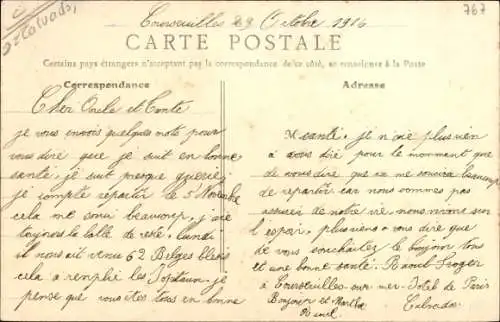 Calvados
767
Courseuilles 29 Octobre 1916
CARTE POSTALE
Certains pays étrangers n'acceptent pas la correspondance de ce côté, se renseigner à la Poste
Correspondance
Cher Oncle et Tante
je vous envois quelques mots pour
vous dire que je suit en bonne
santé. je suit presque guerie
je compte repartir le 5 Novembre
cela me ennui beaucoup, j'aie
toujours la balle de reste. Lundi
il nous ait venue 62 Belges blessés
cela a remplie les Hopitaux. je
pense que vous êtes tous en bonne
Adresse
santé. je n'aie plus rien
à vous dire pour le mommant que
de vous dire que sa me soucira beaucoup
de repartir car nous sommes pas
assurer de notre vie nous vivons sur
l'espoir, plus rien a vous dire que
de vous souhaitez le bonjour tous
et une bonne santé. Raoul
à Courseuilles sur mer Hotel de Paris
Bonjour et Marthe Calvados
Raoul